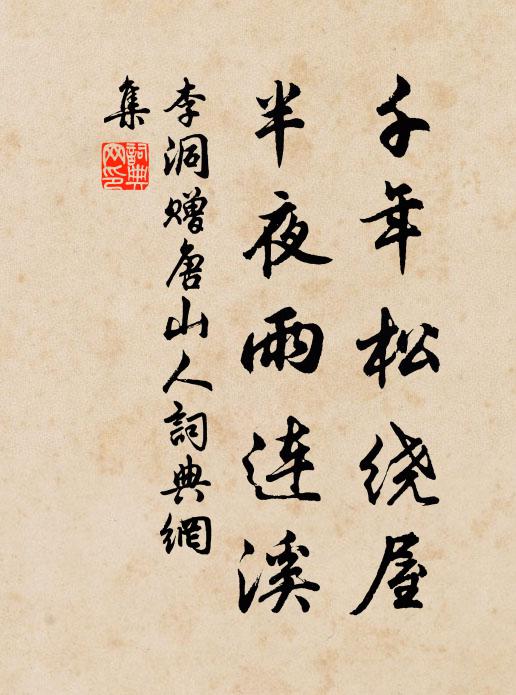 千年松绕屋
半夜雨连溪
李洞赠唐山人詞典網
集
詞典网印